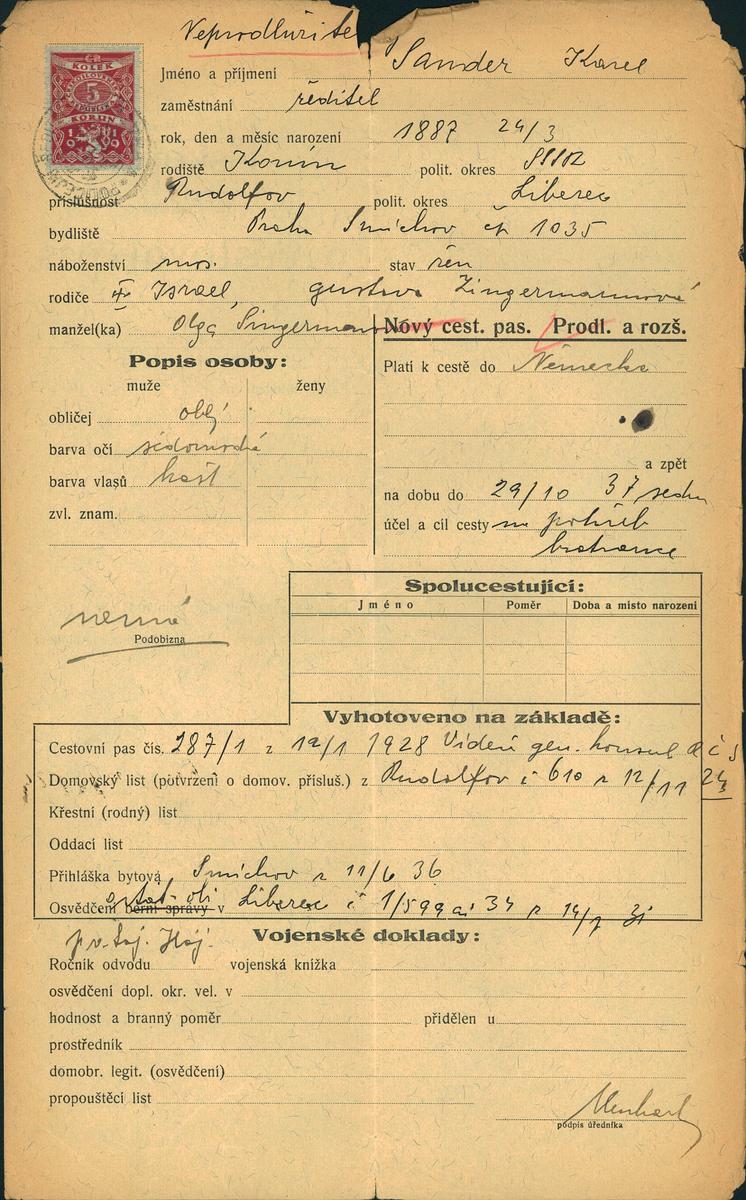 Neprodlužitel
KOLEK
5
KORUN
1919
Jméno a příjmení Sander Karel
zaměstnání ředitel
rok, den a měsíc narození 1887 24/3
rodiště polit. okres SSSR
příslušnost Rudolfov polit. okres Liberec
bydliště Praha Smíchov čp 1035
náboženství mos. stav žen
rodiče Israel, Gustava Zingermannová
manžel(ka) Olga Singermanová
Nový cest. pas. Prodl. a rozš.
Popis osoby:
Platí k cestě do Německa
muže ženy
obličej oblý
barva očí šedomodrá
barva vlasů kašt
a zpět
na dobu do 29/10 37
zvl. znam.
účel a cíl cesty na pohřeb
bratrance
Spolucestující:
Jméno Poměr Doba a místo narození
nemá
Podobizna
Vyhotoveno na základě:
Cestovní pas čís. 287/1 z 12/1 1928 Vídeň gen. konsul RčS
Domovský list (potvrzení o domov. přísluš.) z Rudolfov č 610 z 12/11 24
Křestní (rodný) list
Oddací list
Přihláška bytová Smíchov z 11/6 36
Osvědčení berní správy v Liberec č 1/599 ai 34 z 14/7 31
Vojenské doklady:
Ročník odvodu vojenská knížka
osvědčení dopl. okr. vel. v
hodnost a branný poměr přidělen u
prostředník
domobr. legit. (osvědčení)
propouštěcí list
podpis úředníka